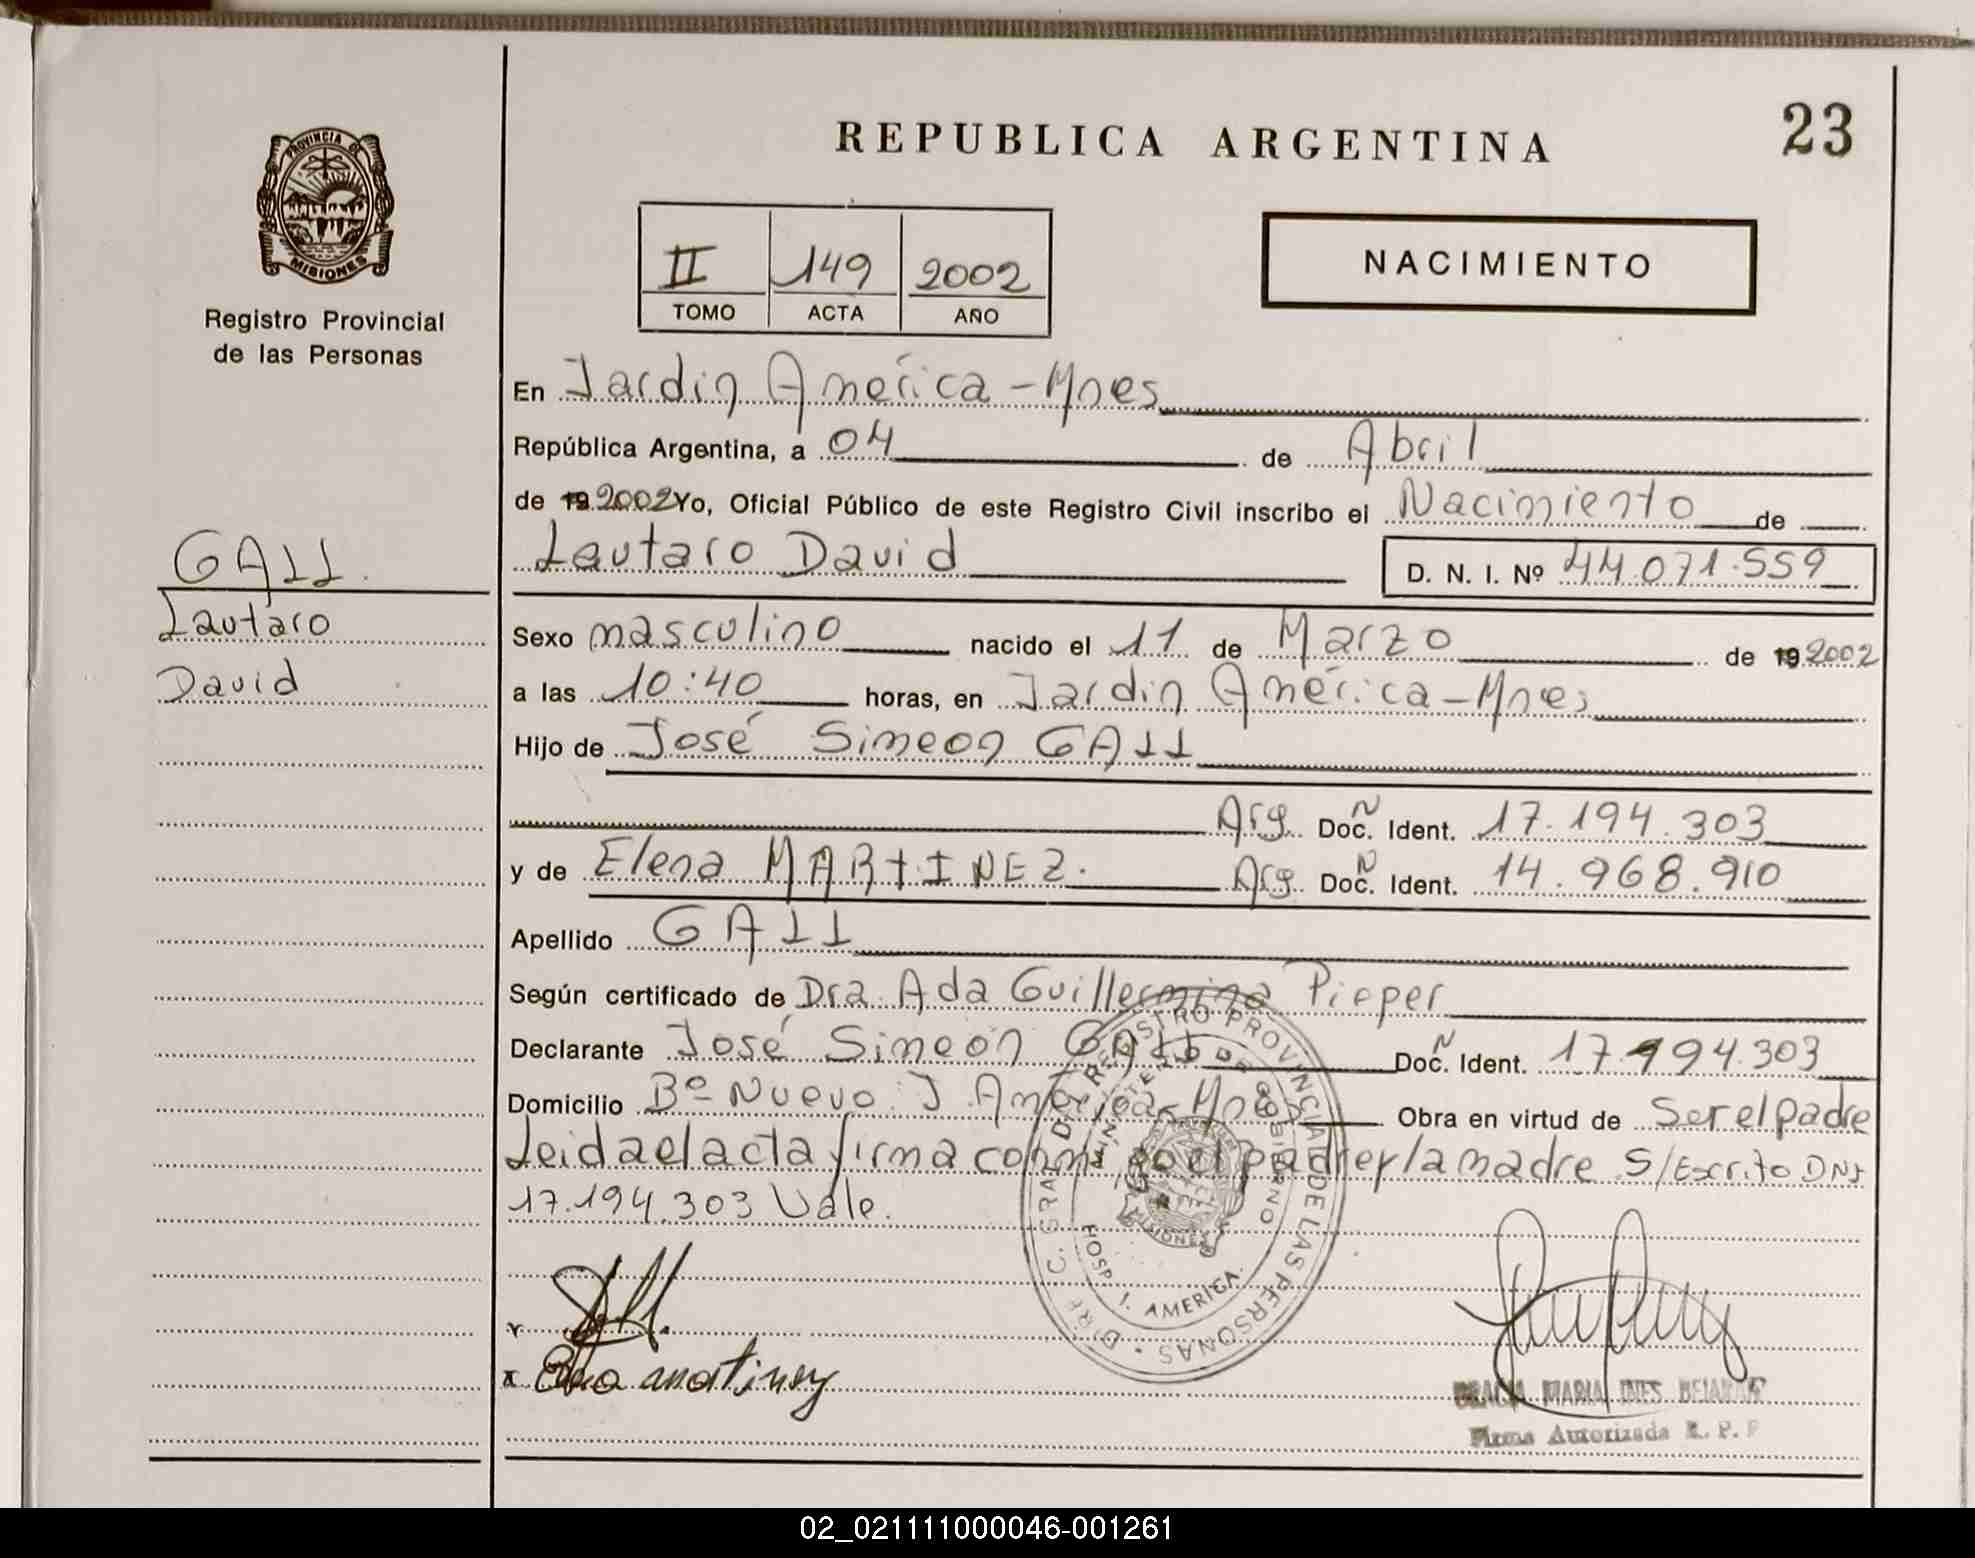 REPUBLICA ARGENTINA
23
PROVINCIA DE
MISIONES
Registro Provincial
de las Personas
II 149 2002
TOMO ACTA AÑO
NACIMIENTO
En Jardin América - Mnes
República Argentina, a 04 de Abril
de 19 2002 Yo, Oficial Público de este Registro Civil inscribo el Nacimiento de
Lautaro David D. N. I. Nº 44.071.559
GALL.
Lautaro
David
Sexo masculino nacido el 11 de Marzo de 19 2002
a las 10:40 horas, en Jardin América - Mnes
Hijo de José Simeon GALL
Arg. Doc. Ñ Ident. 17.194.303
y de Elena MARTINEZ. Arg. Doc. Ñ Ident. 14.968.910
Apellido GALL
Según certificado de Dra. Ada Guillermina Pieper
Declarante José Simeón GALL Doc. Ñ Ident. 17.194.303
Domicilio Bº Nuevo J. América - Mnes Obra en virtud de Ser el padre
Leida el acta firma conmigo el padre y la madre S/Escrito DNI
17.194.303 Vale.
DIRE C. GRAL. DE REGISTRO PROVINCIAL DE LAS PERSONAS
MINISTERIO DE GOBIERNO
MISIONES
HOSP. J. AMERICA
x Elena martinez
MARIA INES
Firma Autorizada R. P. P
02_021111000046-001261